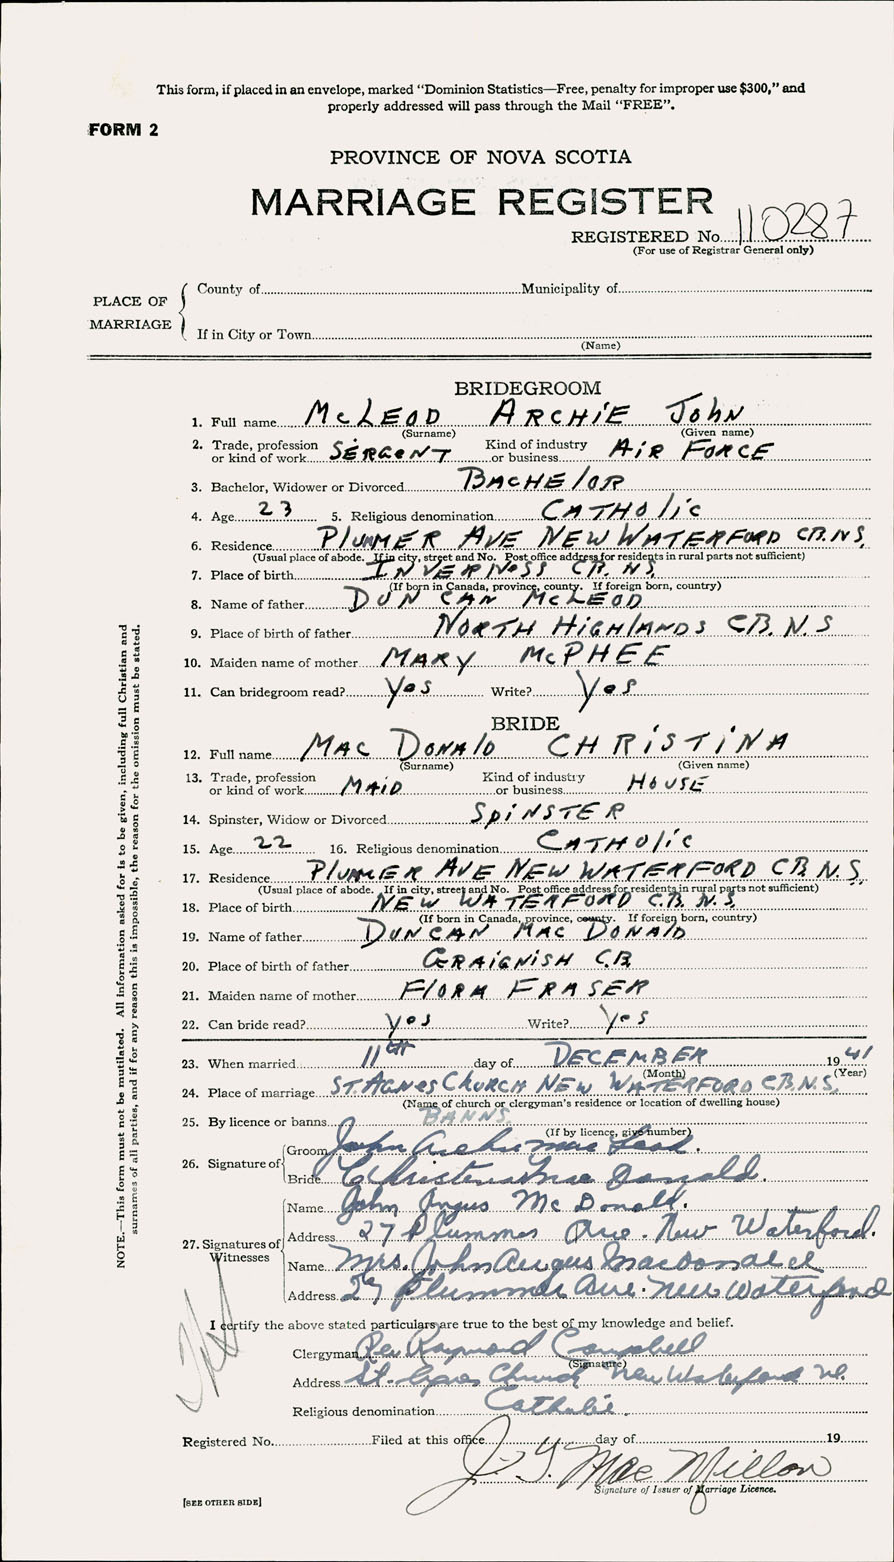 This form, if placed in an envelope, marked "Dominion Statistics—Free, penalty for improper use $300," and
properly addressed will pass through the Mail "FREE".
FORM 2
PROVINCE OF NOVA SCOTIA
MARRIAGE REGISTER
REGISTERED No. 110287
(For use of Registrar General only)
PLACE OF MARRIAGE
County of Municipality of
If in City or Town
(Name)
BRIDEGROOM
1. Full name McLEOD ARCHiE JohN
(Surname) (Given name)
2. Trade, profession or kind of work SERGENT Kind of industry or business AiR FORCE
3. Bachelor, Widower or Divorced BACHElOR
4. Age 23 5. Religious denomination CATHOlic
6. Residence PlUMMER AVE NEW WATERFORD CB. N.S.
(Usual place of abode. If in city, street and No. Post office address for residents in rural parts not sufficient)
7. Place of birth INVERNOSS CB. N.S.
(If born in Canada, province, county. If foreign born, country)
8. Name of father DUNCAN McLEOD
9. Place of birth of father NORTH HigHlANDS CB. N.S
10. Maiden name of mother MARY McPHEE
11. Can bridegroom read? yos Write? yos
BRIDE
12. Full name MAC DONAlD CHRiSTiNA
(Surname) (Given name)
13. Trade, profession or kind of work MAiD Kind of industry or business HOUSE
14. Spinster, Widow or Divorced SpiNSTER
15. Age 22 16. Religious denomination CATHOlic
17. Residence PlUMMER AVE NEW WATERFORD CB N.S.
(Usual place of abode. If in city, street and No. Post office address for residents in rural parts not sufficient)
18. Place of birth NEW WATERFORD C.B. N.S.
(If born in Canada, province, county. If foreign born, country)
19. Name of father DUNCAN MAC DONAlD
20. Place of birth of father CRAIGNISH C.B.
21. Maiden name of mother FlORA FRASER
22. Can bride read? yos Write? yos
23. When married 11th day of DECEMBER 1941
(Month) (Year)
24. Place of marriage ST. AGNES CHURCH NEW WATERFORD CB. N.S.
(Name of church or clergyman's residence or location of dwelling house)
25. By licence or banns BANNS
(If by licence, give number)
26. Signature of
Groom John Archie Mac Leod.
Bride Christena Mac Donald.
27. Signatures of Witnesses
Name John Angus McDonald.
Address 27 Plummer Ave. New Waterford.
Name Mrs. John Angus Macdonald
Address 27 Plummer Ave. New Waterford
I certify the above stated particulars are true to the best of my knowledge and belief.
Clergyman Rev Raymond Campbell
(Signature)
Address St. Agnes Church New Waterford
Religious denomination Catholic.
Registered No. Filed at this office day of 19
J. Y. MacMillan
Signature of Issuer of Marriage Licence.
[SEE OTHER SIDE]
NOTE.—This form must not be mutilated. All information asked for is to be given, including full Christian and
surnames of all parties, and if for any reason this is impossible, the reason for the omission must be stated.